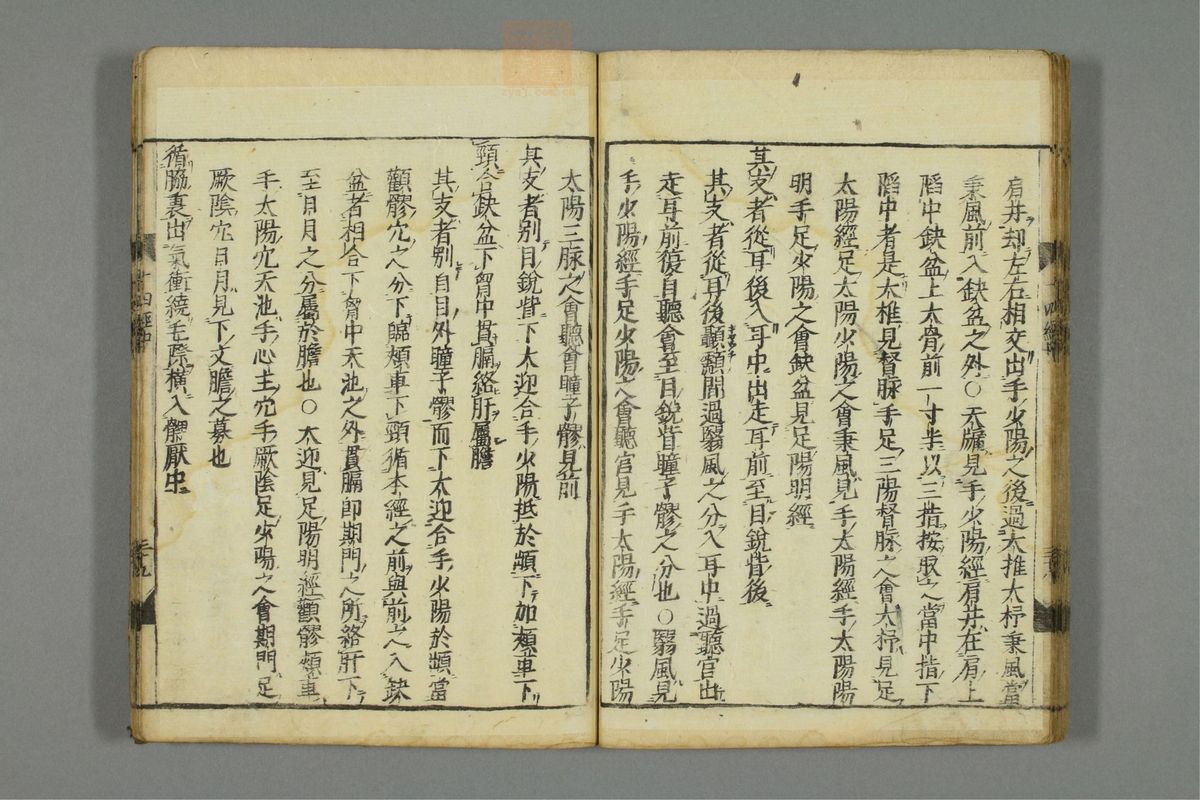 肩井却左右相交出手少陽之後過大椎大杼秉風當
秉風前入缺盆之外○天牖見手少陽經肩井在肩上
陷中缺盆上大骨前一寸半以三指按取之當中指下
陷中者是大椎見督脉手足三陽督脉之會大杼見足
太陽經足太陽少陽之會秉風見手太陽經手太陽陽
明手足少陽之會缺盆見足陽明經
其支者從耳後入耳中出走耳前至目銳眥後
其支者從耳後顳顬間過翳風之分入耳中過聽宮出
走耳前復自聽會至目銳眥瞳子髎之分也○翳風見
手少陽經手足少陽之會聽宮見手太陽經手足少陽
太陽三脉之會聽會瞳子髎見前
其支者別目銳眥下大迎合手少陽抵於䪼下加頰車下
頸合缺盆下胷中貫膈絡肝屬膽
其支者別自目外瞳子髎而下大迎合手少陽於䪼當
顴髎穴之分下臨頰車下頸循本經之前與前之入缺
盆者相合下胷中天池之外貫膈即期門之所絡肝下
至日月之分屬於膽也○大迎見足陽明經顴髎頰車
手太陽穴天池手心主穴手厥陰足少陽之會期門足
厥陰穴日月見下文膽之募也
循脇裏出氣衝繞毛際横入髀厭中
十四經中